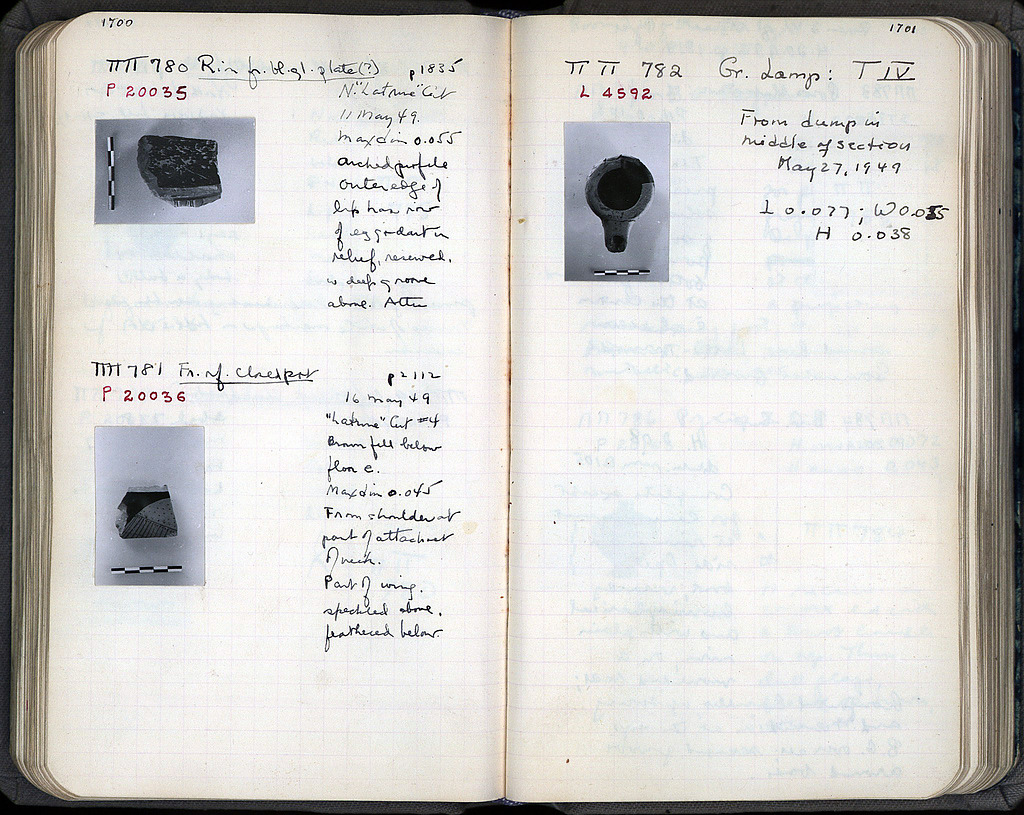 1700
ΠΠ 780 Rim fr. bl. gl. plate (?) p 1835
P 20035
N. "Latrine" Cut
11 May 49.
Max dim 0.055
arched profile
outer edge of
lip has row
of egg & dart in
relief, reserved,
w deep groove
above. Attic
ΠΠ 781 Fr. rf. closed pot p 2112
P 20036
16 May 49
"Latrine" Cut #4
Brown fill below
floor e.
Max dim 0.045
From shoulder at
point of attachmet
of neck.
Part of wing,
speckled above,
feathered below
1701
ΠΠ 782 Gr. Lamp: T IV
L 4592
From dump in
middle of section
May 27, 1949
L 0.077; W 0.055
H 0.038